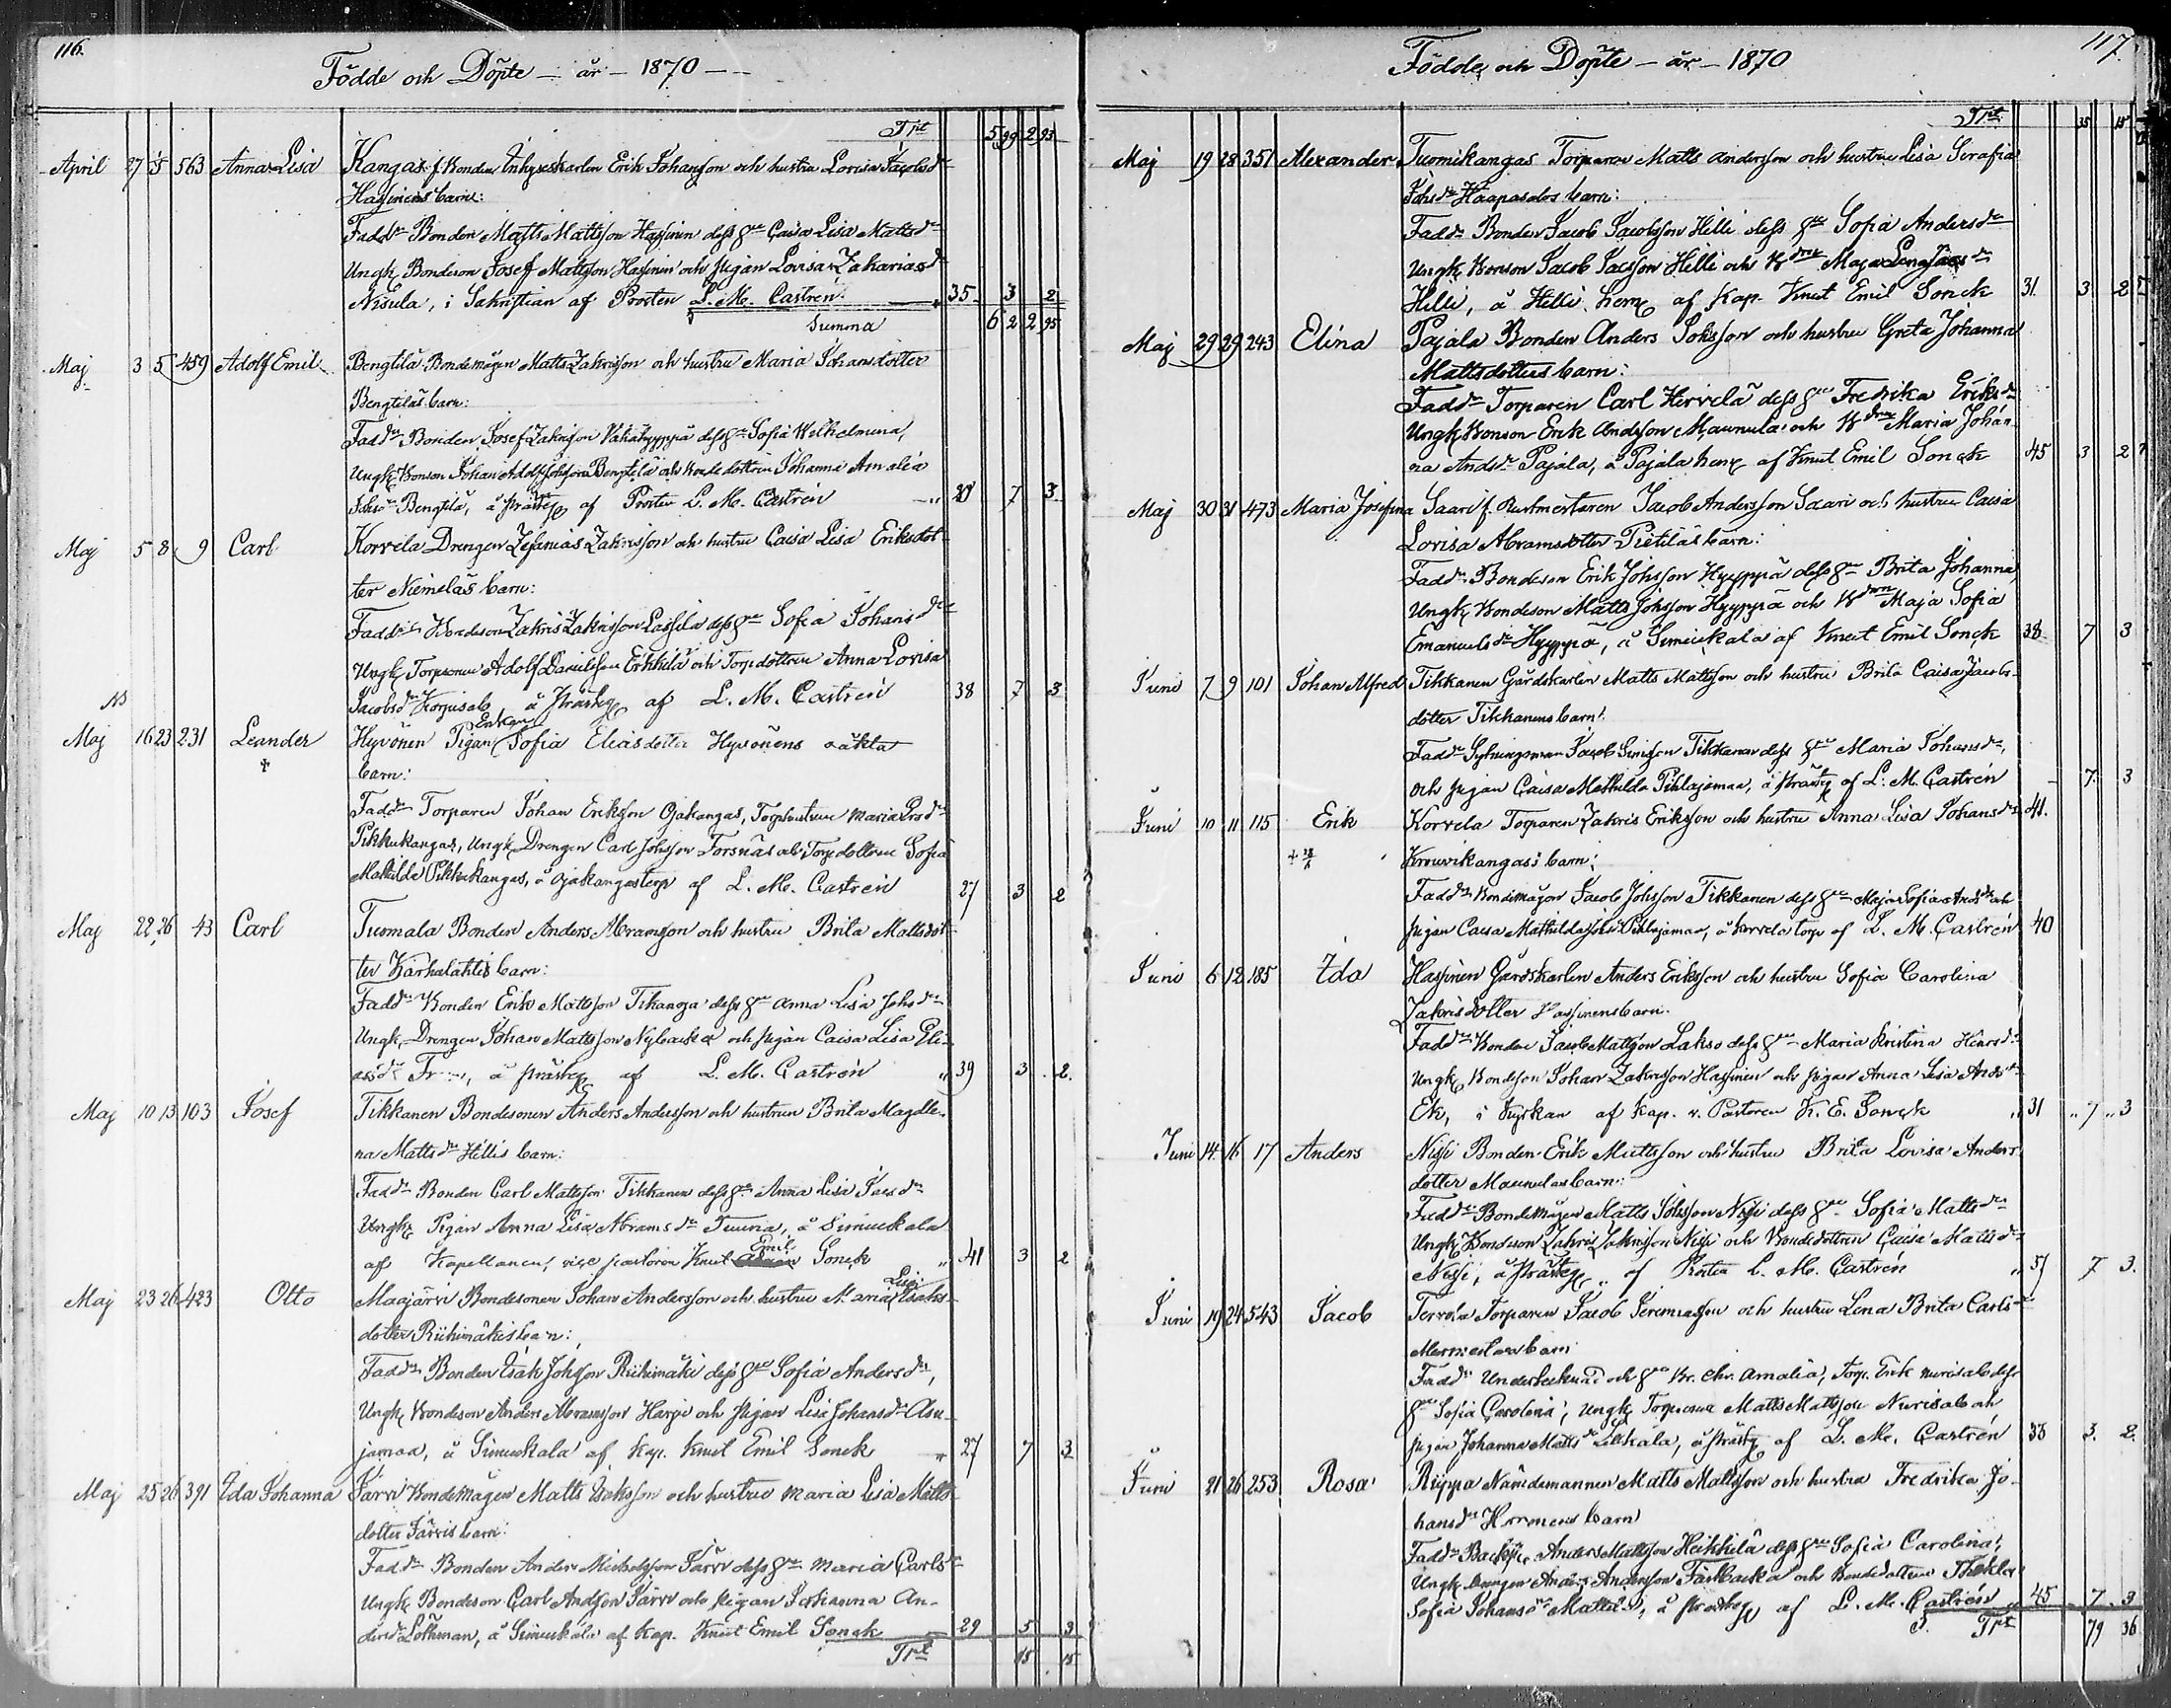 116.
Födde och Döpte — år — 1870 — -
Trt 5 99 2 93
April 27 15 563 Anna Lisa Kangas f. Bonden Inhyseskarlen Erik Johansson och hustru Lovisa Jacobsdr
Hassinens barn:
Faddr Bonden Matts Mattsson Hassinen dess hu Caisa Lisa Mattsdr
Ungk Bondeson Josef Mattsson Hassinen och pigan Lovisa Zakariasdr
Nisula, i Sakristian af Prosten L. M. Castrén. 35 3 2
Summa 6 2 2 95
Maj 3 5 459 Adolf Emil Bengtilä Bondemågen Matts Zakrisson och hustru Maria Johansdotter
Bengtiläs barn:
Faddr Bonden Josef Zakrisson Vähähyyppä dess hu Sofia Wilhelmina,
Ungk Bonson Johan Adolf Johsson Bengtilä och bondedottren Johanna Amalia
Johsdr Bengtilä, å prästeg af Prosten L. M. Castrén 20 7 3
Maj 5 8 9 Carl Korvela Drengen Zefanias Zakrisson och hustru Caisa Lisa Eriksdot-
ter Niemeläs barn:
Faddr Bondeson Zakris Zakrisson Lassila dess hu Sofia Johansdr
Ungk Torparson Adolf Danielsson Erkkilä och Torpdottren Anna Lovisa
Jacobsdr Korpisalo å prästeg af L. M. Castrén 38 7 3
Maj 16 23 231 Leander Hyvönen Pigan Enkan Sofia Eliasdotter Hyvönens oäkta
barn:
Faddr Torparen Johan Eriksson Ojakangas, Torphustrun Maria
Pikkukangas, Ungk Drengen Carl Johsson Forsnäs och Torpdottren Sofia
Mathilda Pikkukangas, å Ojakangas torp af L. M. Castrén 27 3 2
Maj 22 26 43 Carl Tuomala Bonden Anders Abramsson och hustru Brita Mattsdot-
ter Karhulahtis barn:
Faddr Bonden Erik Mattsson Tikanoja dess hu Anna Lisa Johsdr
Ungk Drengen Johan Mattsson Nybacka och pigan Caisa Lisa Eli-
asdr, å prästeg af L. M. Castrén 39 3 2
Maj 10 13 103 Josef Tikkanen Bondesonen Anders Andersson och hustrun Brita Magdle-
na Mattsdr Hillis barn:
Faddr Bonden Carl Mattsson Tikkanen dess hu Anna Lisa Jacsdr
Ungk Pigan Anna Lisa Abramsdr Tuuria, å Simuckala
af Kapellanen, vice pastoren Knut Emil Sonck 41 3 2
Maj 23 26 423 Otto Maajärvi Bondesonen Johan Andersson och hustru Maria Lisa Isaks-
dotter Riihimäkis barn:
Faddr Bonden Isak Johsson Riihimäki dess hu Sofia Andersdr,
Ungk Bondeson Anders Abramsson Harju och pigan Lisa Johansdr Asu-
jamaa, å Simuckala af Kap. Knut Emil Sonck 27 7 3
Maj 25 26 391 Ida Johanna Järvi Bondemågen Matts Isaksson och hustru Maria Lisa Matts-
dotter Järvis barn:
Faddr Bonden Anders Michelsson Järvi dess hu Maria Carlsdr
Ungk Bondeson Carl Andsson Järvi och pigan Johanna An-
dersdr Lothman, å Simuckala af Kap. Knut Emil Sonck 29 5 3
Trt 15 15
117.
Födde och Döpte — år — 1870
Trt 35 15
Maj 19 28 351 Alexander Tuomikangas Torparen Matts Andersson och hustru Lisa Serafia
Johsdr Haapasalos barn:
Faddr Bonden Jacob Jacobsson Hilli dess hu Sofia Andersdr
Ungk Bonson Jacob Jacsson Hilli och Bdrn Maja Lena Jacsdr
Hilli, å Hilli hem af Kap. Knut Emil Sonck 31 3 2
Maj 29 29 243 Elina Pajala Bonden Anders Isaksson och hustru Greta Johanna
Mattsdotters barn:
Faddr Torparen Carl Hirvelä dess hu Fredrika Eriksdr
Ungk Bonson Erik Andsson Maunula och Bdrn Maria Johan-
na Andsdr Pajala, å Pajala hem af Knut Emil Sonck 45 3 2
Maj 30 31 473 Maria Josefina Saari f. Rustmestaren Jacob Andersson Saari och hustru Caisa
Lovisa Abramsdotter Pietiläs barn:
Faddr Bondeson Erik Johsson Hyyppä dess hu Brita Johanna,
Ungk Bondeson Matts Johsson Hyyppä och Bdrn Maja Sofia
Emanuelsdr Hyyppä, å Simuckala af Knut Emil Sonck 38 7 3
Juni 7 9 101 Johan Alfred Tikkanen Gårdskarlen Matts Mattsson och hustru Brita Caisa Jacobs-
dotter Tikkanens barn:
Faddr Sytningsman Jacob Simsson Tikkanen dess hu Maria Johansdr,
och pigan Caisa Mathilda Pihlajamaa, å prästg af L. M. Castrén - 7 3
Juni 10 11 115 Erik Korvela Torparen Zakris Eriksson och hustru Anna Lisa Johansdr 41.
Krouvikangas's barn:
Faddr Bondemågen Jacob Johsson Tikkanen dess hu Maja Sofia Andsdr och
pigan Caisa Mathilda Pihlajamaa, å Korvela torp af L. M. Castrén 40
Juni 6 12 185 Ida Hassinen Gårdskarlen Anders Eriksson och hustru Sofia Carolina
Zakrisdotter Hassinens barn.
Faddr Bonden Jacob Mattsson Lakso dess hu Maria Kristina Hinrsdr
Ungk Bondsson Johan Zakrisson Hassinen och pigan Anna Lisa Andsdr
Ek, i Kyrkan af Kap. v. Pastoren K. E. Sonck 31 7 3
Juni 14 16 17 Anders Nissi Bonden Erik Mattsson och hustru Brita Lovisa Anders-
dotter Maunulas barn:
Faddr Bondemågen Matts Johsson Nissi dess hu Sofia Mattsdr
Ungk Bondeson Zakris Zakrisson Nissi och Bondedottren Caisa Mattsdr
Nissi, å prästeg af Prosten L. M. Castrén 37 7 3.
Juni 19 24 543 Jacob Torparen Jacob Jeremiasson och hustru Lena Brita Carlsdr
barn
Faddr och hu Amalia, Torp. Erik Nurisalo dess
hu Sofia Carolina, Ungk Torpson Matts Mattsson Nurisalo och
pigan Johanna Mattsdr, å prästg af L. M. Castrén 33 3. 2.
Juni 21 26 253 Rosa Riippa Nämdemannen Matts Mattsson och hustru Fredrika Jo-
hansdr barn
Faddr Anders Mattsson Heikkilä dess hu Sofia Carolina,
Ungk Drengen Anders Andersson Färbacka och Bondedottren Thekla
Sofia Johansdr Mattila, å prästeg af L. M. Castrén 45 7 3
Trt 79 36